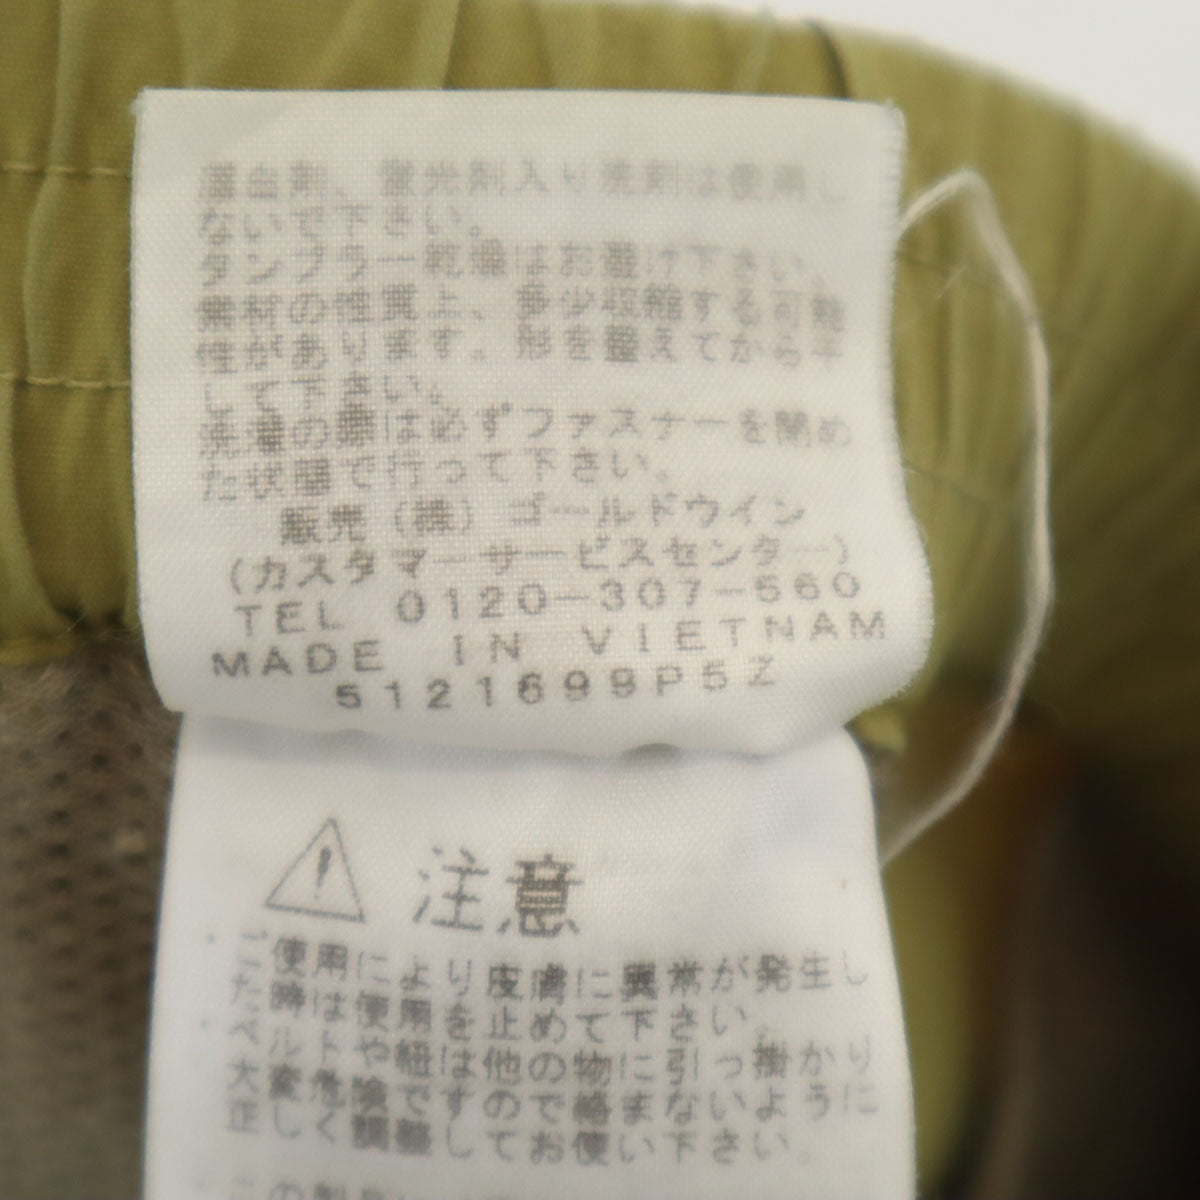 漂白剤、蛍光剤入り洗剤は使用し
ないで下さい。
タンブラー乾燥はお避け下さい。
素材の性質上、多少収縮する可能
性があります。形を整えてから干
して下さい。
洗濯の際は必ずファスナーを閉め
た状態で行って下さい。
販売（株）ゴールドウイン
（カスタマーサービスセンター）
TEL 0120-307-560
MADE IN VIETNAM
5121699P5Z
注意
ご使用により皮膚に異常が発生し
た時は使用を止めて下さい。
ベルトや紐は他の物に引っ掛かり
大変危険ですので絡まないように
正しく調整してお使い下さい。
この製